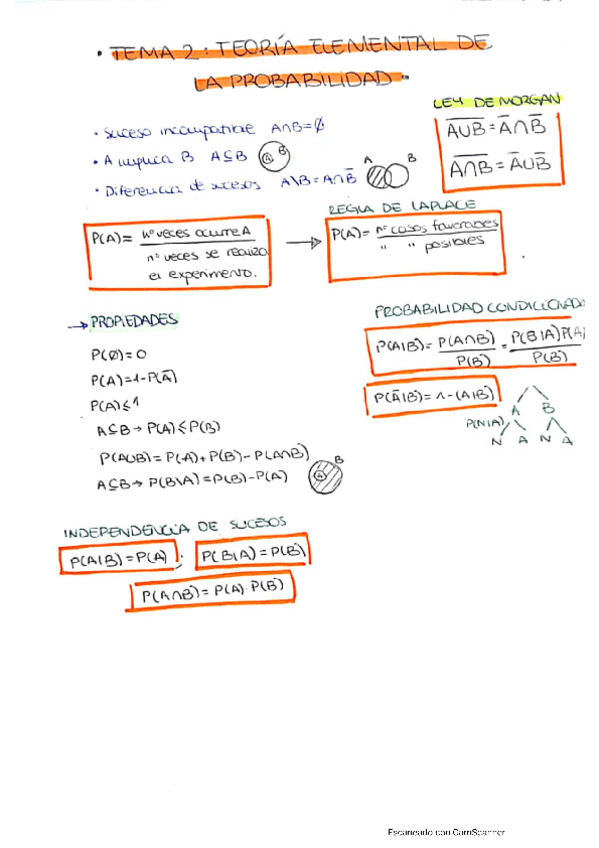 • TEMA 2: TEORÍA ELEMENTAL DE
LA PROBABILIDAD •
LEY DE MORGAN
• Suceso incompatible A∩B=∅
• A implica B A⊆B A B
• Diferencia de sucesos A\B=A∩B̅ A B
A̅∪̅B̅=A̅∩B̅
A̅∩̅B̅=A̅∪B̅
P(A)= nº veces ocurre A
nº veces se realiza
el experimento.
REGLA DE LAPLACE
P(A)= nº casos favorables
" " posibles
→ PROPIEDADES
P(∅)=0
P(A)=1-P(A̅)
P(A)≤1
A⊆B → P(A)≤P(B)
P(A∪B)=P(A)+P(B)-P(A∩B)
A⊆B → P(B\A)=P(B)-P(A) A B
PROBABILIDAD CONDICIONADA
P(A|B)= P(A∩B) = P(B|A)P(A)
P(B) P(B)
P(A̅|B)= 1-(A|B)
A B
P(N|A)
N A N A
INDEPENDENCIA DE SUCESOS
P(A|B)=P(A) ; P(B|A)=P(B)
P(A∩B)=P(A)·P(B)
Escaneado con CamScanner